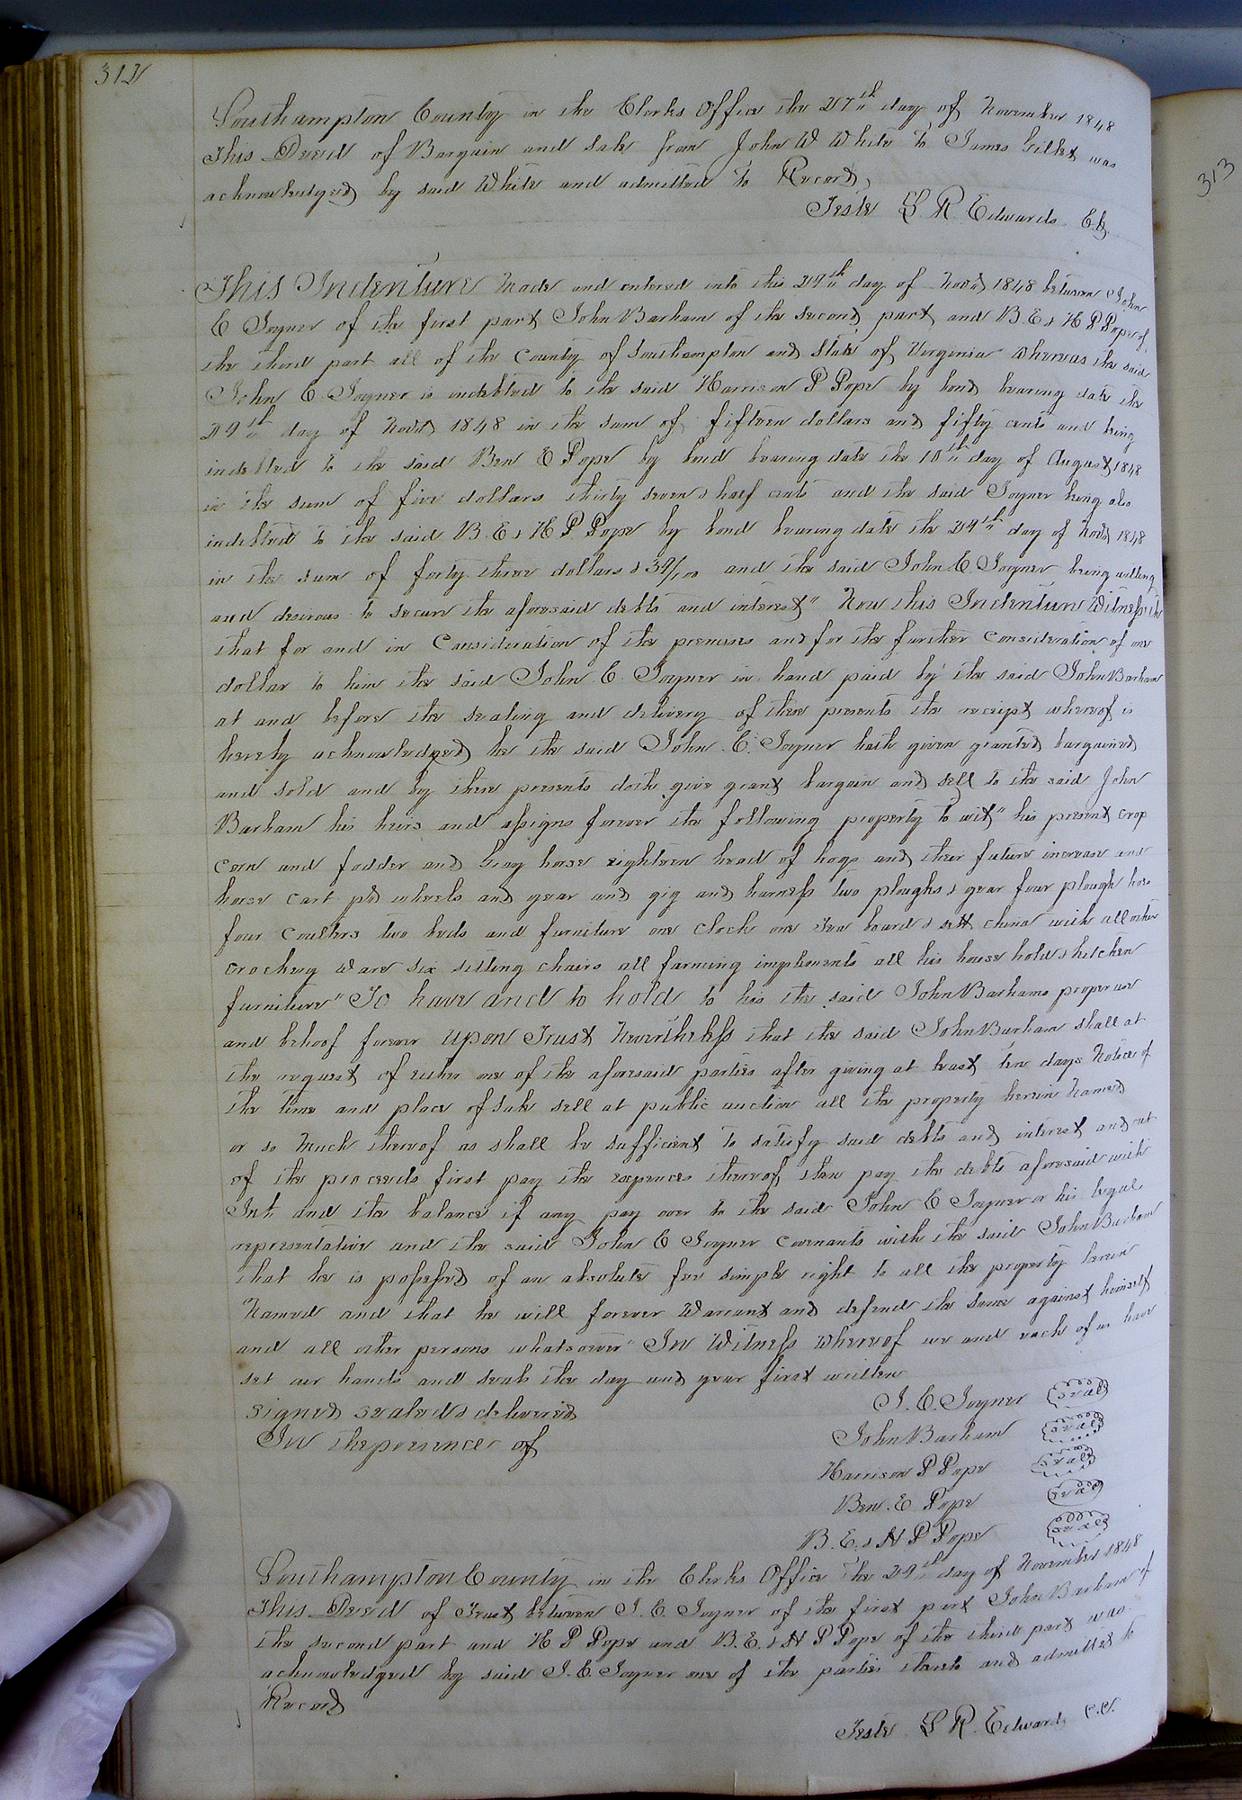 312
Southampton County in the Clerks Office the 27th day of November 1848
This Deed of Bargain and sale from John W White to James Gillet was
acknowledged by said White and admitted to Record,
Teste L R Edwards C.C.
This Indenture Made and entered into this 29th day of Novr 1848 between John
E Joyner of the first part John Barham of the second part and B. E & H P Pope of
the third part all of the County of Southampton and State of Virginia Whereas the said
John E Joyner is indebted to the said Harrison P Pope by bond bearing date the
29th day of Novr 1848 in the sum of fifteen dollars and fifty cents and being
indebted to the said Ben E Pope by bond bearing date the 10th day of August 1848
in the sum of five dollars thirty seven & half cents and the said Joyner being also
indebted to the said B. E & H P Pope by bond bearing date the 29th day of Novr 1848
in the sum of forty three dollars & 39/100 and the said John E Joyner being willing
and desirous to secure the aforesaid debts and interest" Now this Indenture Witnesseth
that for and in Consideration of the premises and for the further Consideration of one
dollar to him the said John E Joyner in hand paid by the said John Barham
at and before the sealing and delivery of these presents the receipt whereof is
hereby acknowledged he the said John E. Joyner hath given granted bargained
and sold and by these presents doth give grant bargain and sell to the said John
Barham his heirs and assigns forever the following property to wit" his present crop
corn and fodder and bay horse eighteen head of hogs and their future increase and
horse cart pr wheels and gear and gig and harness two ploughs & gear four plough hoes
four coulters two beds and furniture one clock one tea board & sett china with all other
crockery ware six sitting chairs all farming impliments all his house hold & kitchen
furniture" To have and to hold to his the said John Barhams proper use
and behoof forever upon Trust Nevertheless that the said John Barham shall at
the request of either one of the aforesaid parties after giving at least ten days Notice of
the time and place of sale sell at public auction all the property herein Named
or so Much thereof as shall be sufficient to satisfy said debts and interest and out
of the proceeds first pay the expences thereof then pay the debts aforesaid with
Int. and the balance if any pay over to the said John E Joyner or his legal
representative and the said John E Joyner Covenants with the said John Barham
that he is possessed of an absolute fee simple right to all the property herein
Named and that he will forever Warrant and defend the same against himself
and all other persons whatsoever" In Witness Whereof we and each of us have
set our hands and seals the day and year first written
signed sealed & delivered
In the presence of
J. E. Joyner seal
John Barham seal
Harrison P Pope seal
Ben. E Pope seal
B. E. & H P Pope seal
Southampton County in the Clerks Office the 29th day of November 1848
This Deed of Trust between J. E. Joyner of the first part John Barham of
the second part and H P Pope and B. E. & H P Pope of the third part was
acknowledged by said J. E. Joyner one of the parties thereto and admitted to
Record
Teste L R. Edwards C.C.
313